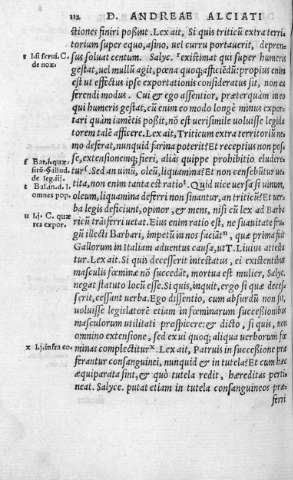 112. D. ANDREAE ALCIATI
ctiones finiri possint. Lex ait, Si quis triticū extra terri-
torium super equo, asino, uel curru portauerit, depren-
sus soluat centum. Salyc. existimat qui super humeris
gestat, uel mullū agit, pœna quoq; afficiēdū: propius enim
est ut effectus ipse exportationis consideratus sit, non
ferendi modus. Cui & ego assentior, prætertim in eo
qui humeris gestat, cū enim eo modo longè minus expor-
tari quàm iamētis possit, nō est uerisimile uoluisse legisla-
torem talē afficere. Lex ait, Triticum extra territoriū ne-
mo deferat, nunquid farina poterit? Et receptius non pos-
se, extensionemq; fieri, alias quippe prohibitio eludere-
tur. Sed an uinū, oleū, liquamina? Et non censebūtur ue-
tita, nō enim tanta est ratio. Quid uice uersa si uinum,
oleum, liquamina deferri non sinantur, an triticū? Et uer-
ba legis deficiunt, opinor, & mens, nisi cū lex ad Barba-
ricū trāsferri uetat. Eius enim ratio est, ne suauitate fru-
gū illecti Barbari, impetū in nos faciāt, quæ prima fuit
Gallorum in Italiam aduentus causa, ut T. Liuius attesta-
tur. Lex ait. Si quis decesserit intestatus, ei existentibus
masculis fœminæ nō succedāt, mortua est mulier, Salyc.
negat statuto locū esse. Si quis, inquit, ergo si quæ deces-
serit, cessant uerba. Ego dissentio, cum absurdū non sit,
uoluisse legislatorē etiam in fœminarum successionibus
masculorum utilitati prospicere: & dicto, si quis, non
omnino extensione, sed ex ui quoq; aliqua uerborum fœ-
minas complectitur. Lex ait, Patruis in successione præ-
ferantur consanguinei, nunquid & in tutela? Et cum hæc
æquiparata sint, & quò tutela redit, hæreditas perti-
neat. Salyce. putat etiam in tutela consanguineos præ-
ferri
s Idi ferui. C.
de nox.
t Bald.
de legit.
omnes pop.
u l. j. C. quæ
res expor.
x l. j. infra eo.